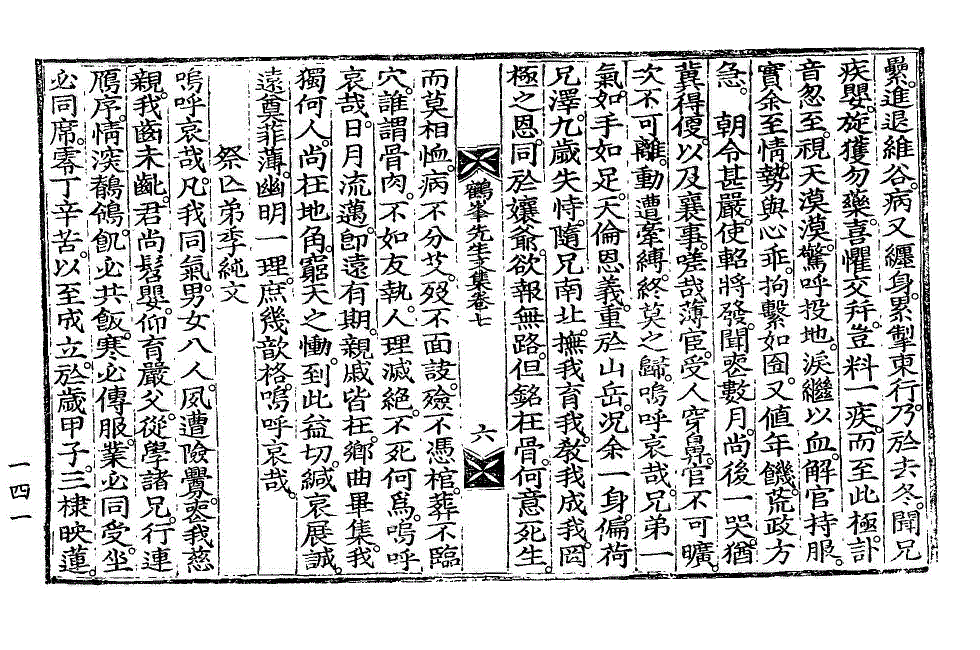 纍。進退維谷。病又纏身。累掣東行。乃於去冬。聞兄
疾嬰。旋獲勿藥。喜懼交幷。豈料一疾。而至此極。訃
音忽至。視天漠漠。驚呼投地。淚繼以血。解官持服。
實余至情。勢與心乖。拘繫如囹。又値年饑。荒政方
急。 朝令甚嚴。使軺將發。聞喪數月。尙後一哭。猶
冀得優。以及襄事。嗟哉薄宦。受人穿鼻。官不可曠。
次不可離。動遭牽縛。終莫之歸。嗚呼哀哉。兄弟一
氣。如手如足。天倫恩義。重於山岳。况余一身。偏荷
兄澤。九歲失恃。隨兄南北。撫我育我。敎我成我。罔
極之恩。同於孃爺。欲報無路。但銘在骨。何意死生。
鶴峯先生文集卷七 六
而莫相恤。病不分艾。歿不面訣。殮不憑棺。葬不臨
穴。誰謂骨肉。不如友執。人理滅絕。不死何爲。嗚呼
哀哉。日月流邁。卽遠有期。親戚皆在。鄕曲畢集。我
獨何人。尙在地角。窮天之慟。到此益切。緘哀展誠。
遠奠菲薄。幽明一理。庶幾歆格。嗚呼哀哉。
祭亡弟季純文
嗚呼哀哉。凡我同氣。男女八人。夙遭險釁。喪我慈
親。我齒未齔。君尙髫嬰。仰育嚴父。從學諸兄。行連
鴈序。情深鶺鴒。飢必共飯。寒必傳服。業必同受。坐
必同席。零丁辛苦。以至成立。於歲甲子。三棣映蓮。
一四一